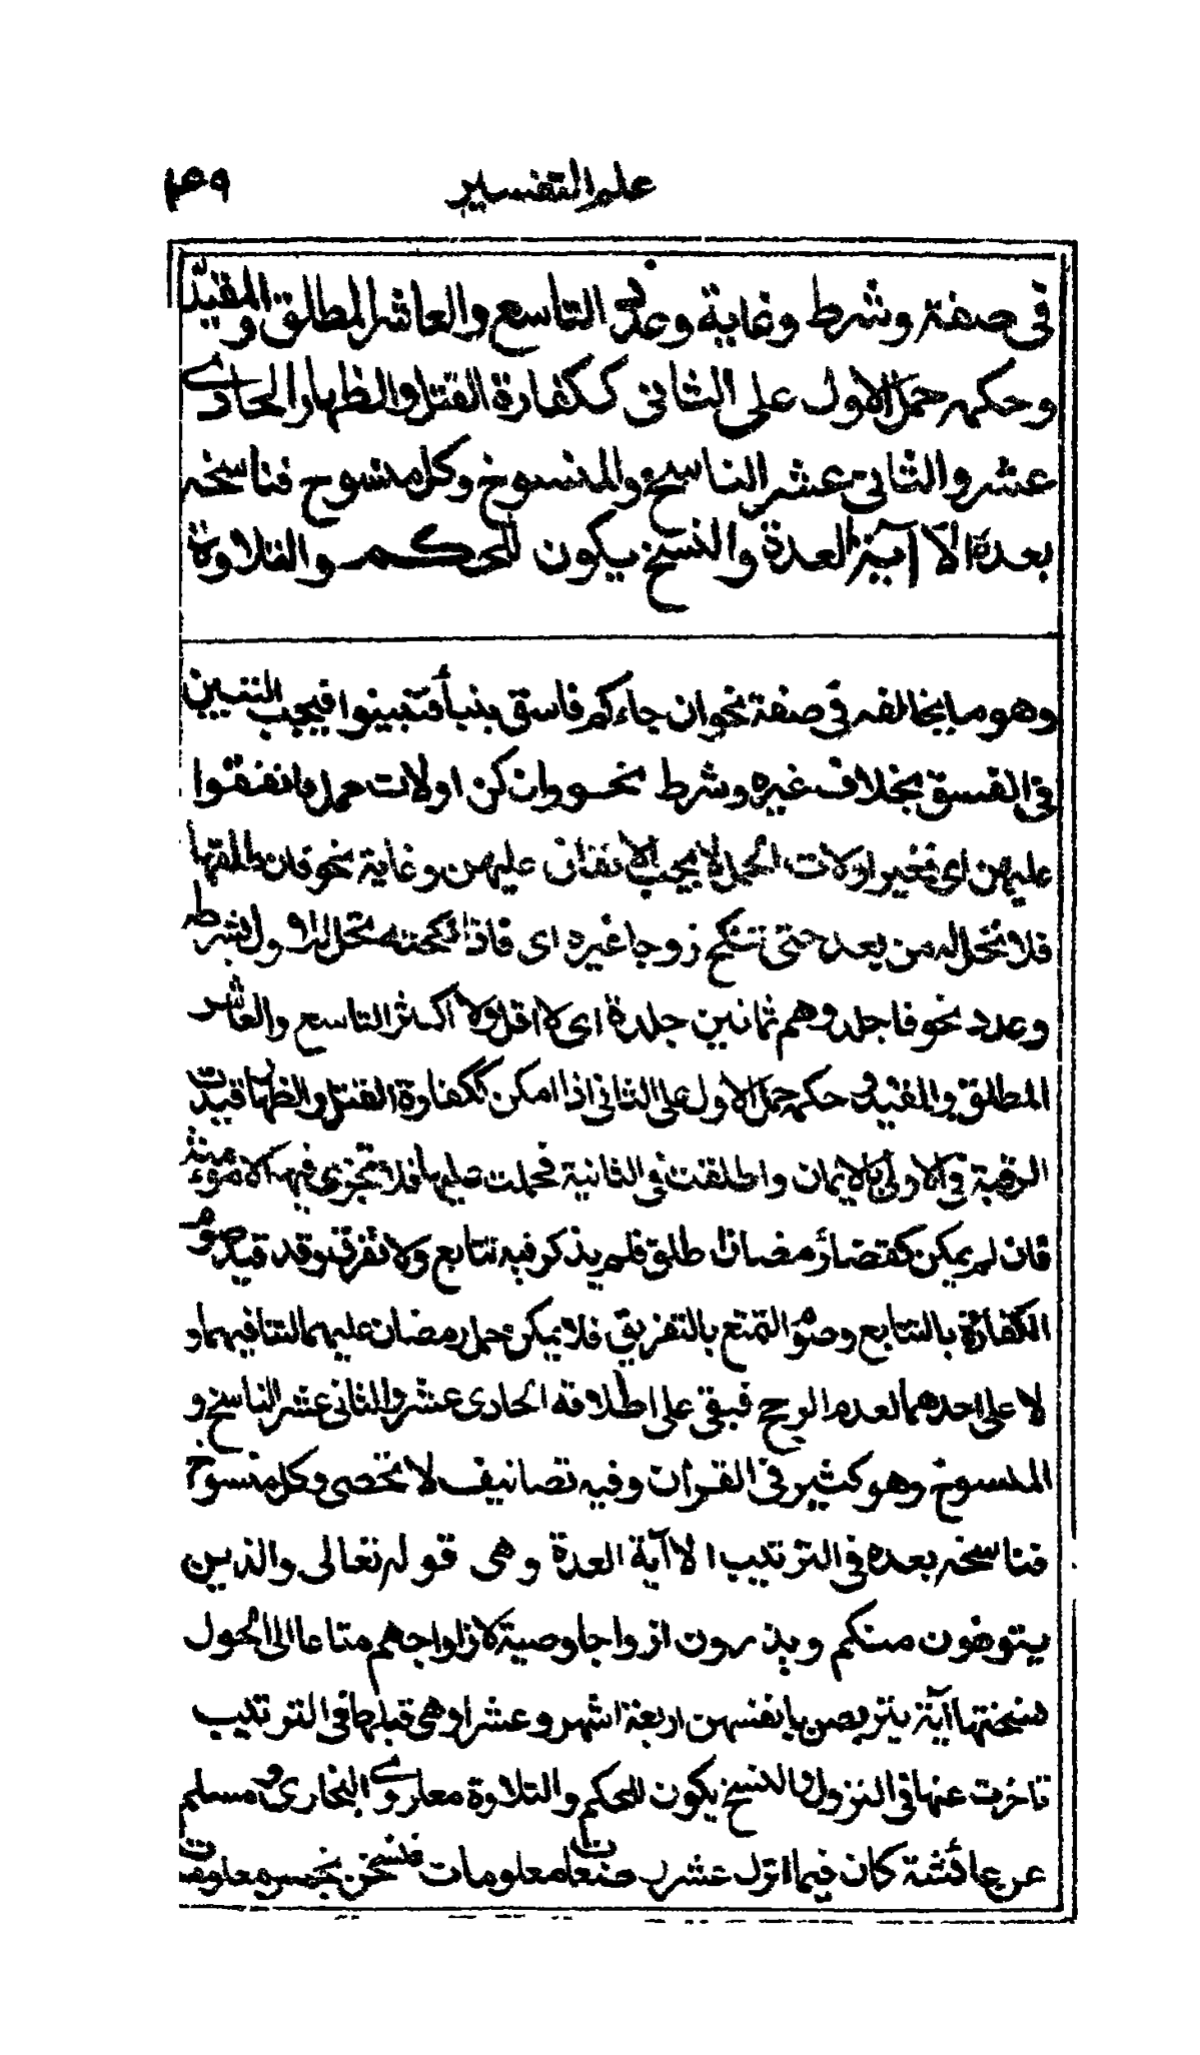 علم التفسير
في صفة وشرط وغاية وعدد التاسع والعاشر المطلق والمقيد
وحكمه حمل الاول على الثاني ككفارة القتل والظهار الحادي
عشر والثاني عشر الناسخ والمنسوخ وكل منسوخ فناسخه
بعده الا آية العدة والنسخ يكون للحكم والتلاوة
وهو ما يخالفه في صفة نحو ان جاءكم فاسق بنبأ فتبينوا فيجب التبيين
في الفسق بخلاف غيره وشرط نحو وان كن اولات حمل فانفقوا
عليهن اى فغير اولات الحمل لا يجب الانفاق عليهن وغاية نحو فان طلقها
فلا تحل له من بعد حتى تنكح زوجا غيره اى فاذا نكحته تحل للاول بشرطه
وعدد نحو فاجلدوهم ثمانين جلدة اى لا اقل ولا اكثر التاسع والعاشر
المطلق والمقيد حكمه حمل الاول على الثاني اذا امكن ككفارة القتل والظهار قيدت
الرقبة في الاولى بالايمان واطلقت في الثانية فحملت عليها فلا تجزى فيها الا مؤمنة
فان لم يمكن كقضاء رمضان اطلق فلم يذكر فيه تتابع ولا تفريق وقد قيد صوم
الكفارة بالتتابع وصوم التمتع بالتفريق فلا يمكن حمل رمضان عليهما لتنافيهما و
لا على احدهما لعدم المرجح فبقي على اطلاقه الحادى عشر والثاني عشر الناسخ و
المنسوخ وهو كثير في القرآن وفيه تصانيف لا تحصى وكل منسوخ
فناسخه بعده في الترتيب الا آية العدة وهى قوله تعالى والذين
يتوفون منكم ويذرون ازواجا وصية لازواجهم متاعا الى الحول
نسختها آية يتربصن بانفسهن اربعة اشهر وعشرا وهى قبلها في الترتيب
تاخرت عنها في النزول والنسخ يكون للحكم والتلاوة معا روى البخارى ومسلم
عن عائشة كان فيما انزل عشر رضعات معلومات فنسخن بخمس معلومات